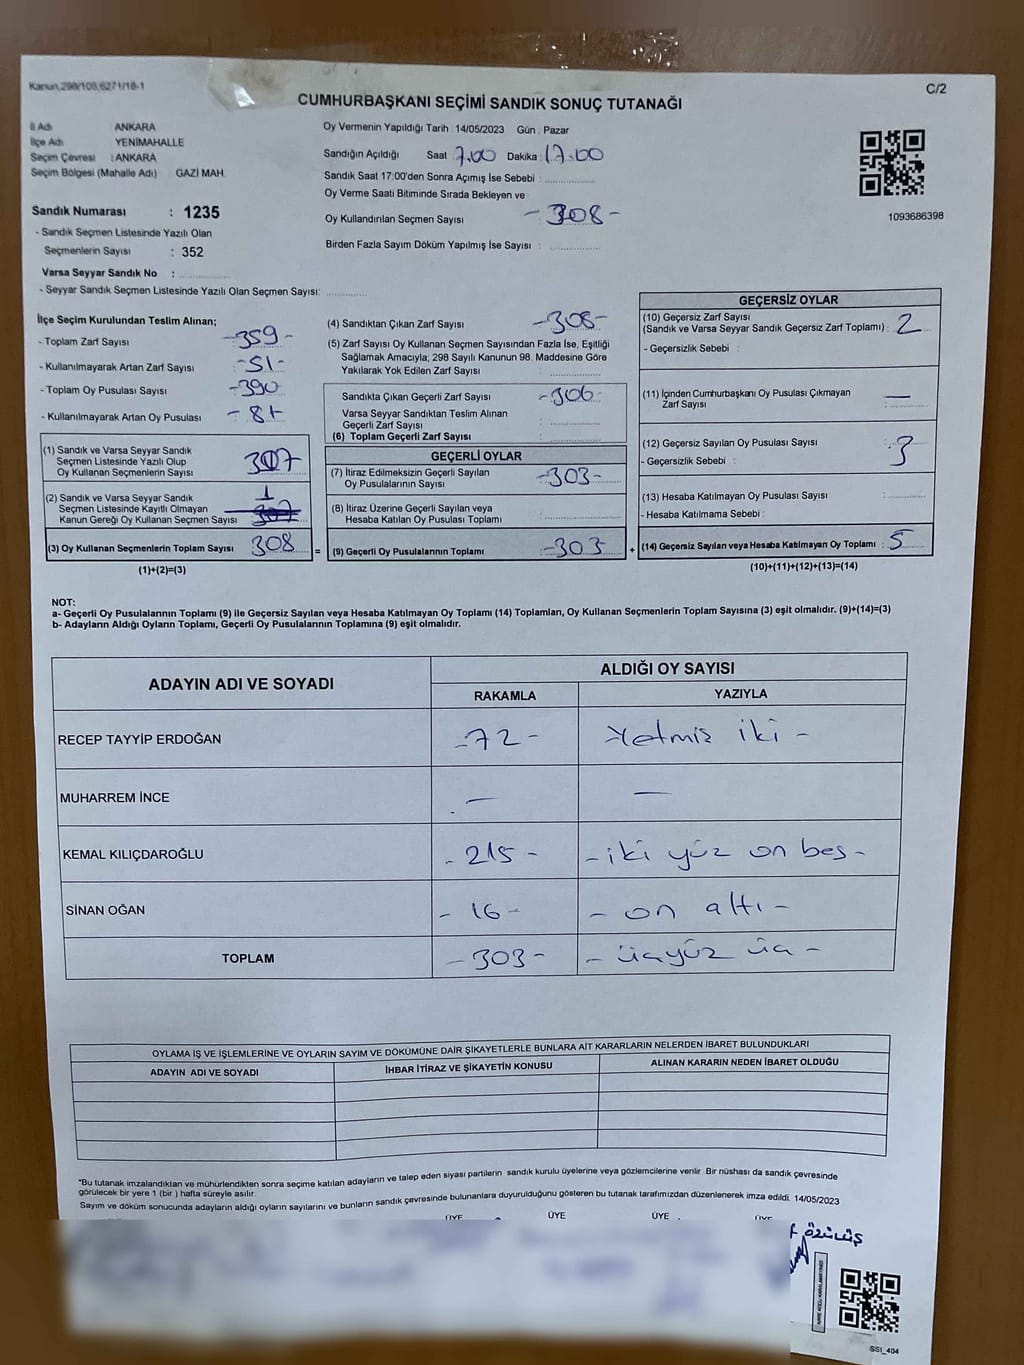 Kanun,298/105,6271/18-1
C/2
CUMHURBAŞKANI SEÇİMİ SANDIK SONUÇ TUTANAĞI
İl Adı ANKARA
İlçe Adı YENİMAHALLE
Seçim Çevresi : ANKARA
Seçim Bölgesi (Mahalle Adı) : GAZİ MAH.
Sandık Numarası : 1235
- Sandık Seçmen Listesinde Yazılı Olan
Seçmenlerin Sayısı : 352
Varsa Seyyar Sandık No :
- Seyyar Sandık Seçmen Listesinde Yazılı Olan Seçmen Sayısı:
Oy Vermenin Yapıldığı Tarih : 14/05/2023 Gün : Pazar
Sandığın Açıldığı Saat 7.00 Dakika : 17.00
Sandık Saat 17:00'den Sonra Açımış İse Sebebi :
Oy Verme Saati Bitiminde Sırada Bekleyen ve
Oy Kullandırılan Seçmen Sayısı - 308 -
Birden Fazla Sayım Döküm Yapılmış İse Sayısı :
1093686398
İlçe Seçim Kurulundan Teslim Alınan;
- Toplam Zarf Sayısı - 359 -
- Kullanılmayarak Artan Zarf Sayısı - 51 -
- Toplam Oy Pusulası Sayısı - 390 -
- Kullanılmayarak Artan Oy Pusulası - 81 -
(1) Sandık ve Varsa Seyyar Sandık
Seçmen Listesinde Yazılı Olup
Oy Kullanan Seçmenlerin Sayısı 307
(2) Sandık ve Varsa Seyyar Sandık
Seçmen Listesinde Kayıtlı Olmayan
Kanun Gereği Oy Kullanan Seçmen Sayısı 1
(3) Oy Kullanan Seçmenlerin Toplam Sayısı 308
(1)+(2)=(3)
=
(4) Sandıktan Çıkan Zarf Sayısı - 308 -
(5) Zarf Sayısı Oy Kullanan Seçmen Sayısından Fazla İse, Eşitliği
Sağlamak Amacıyla; 298 Sayılı Kanunun 98. Maddesine Göre
Yakılarak Yok Edilen Zarf Sayısı :
Sandıkta Çıkan Geçerli Zarf Sayısı - 306 -
Varsa Seyyar Sandıktan Teslim Alınan
Geçerli Zarf Sayısı :
(6) Toplam Geçerli Zarf Sayısı :
GEÇERLİ OYLAR
(7) İtiraz Edilmeksizin Geçerli Sayılan
Oy Pusulalarının Sayısı - 303 -
(8) İtiraz Üzerine Geçerli Sayılan veya
Hesaba Katılan Oy Pusulası Toplamı :
(9) Geçerli Oy Pusulalarının Toplamı - 303
+
GEÇERSİZ OYLAR
(10) Geçersiz Zarf Sayısı
(Sandık ve Varsa Seyyar Sandık Geçersiz Zarf Toplamı) : 2
- Geçersizlik Sebebi :
(11) İçinden Cumhurbaşkanı Oy Pusulası Çıkmayan
Zarf Sayısı : —
(12) Geçersiz Sayılan Oy Pusulası Sayısı : 3
- Geçersizlik Sebebi :
(13) Hesaba Katılmayan Oy Pusulası Sayısı :
- Hesaba Katılmama Sebebi :
(14) Geçersiz Sayılan veya Hesaba Katılmayan Oy Toplamı : 5
(10)+(11)+(12)+(13)=(14)
NOT:
a- Geçerli Oy Pusulalarının Toplamı (9) ile Geçersiz Sayılan veya Hesaba Katılmayan Oy Toplamı (14) Toplamları, Oy Kullanan Seçmenlerin Toplam Sayısına (3) eşit olmalıdır. (9)+(14)=(3)
b- Adayların Aldığı Oyların Toplamı, Geçerli Oy Pusulalarının Toplamına (9) eşit olmalıdır.
ADAYIN ADI VE SOYADI
ALDIĞI OY SAYISI
RAKAMLA YAZIYLA
RECEP TAYYİP ERDOĞAN - 72 - Yetmiş iki -
MUHARREM İNCE — —
KEMAL KILIÇDAROĞLU - 215 - - iki yüz on beş -
SİNAN OĞAN - 16 - - on altı -
TOPLAM - 303 - - üçyüz üç -
OYLAMA İŞ VE İŞLEMLERİNE VE OYLARIN SAYIM VE DÖKÜMÜNE DAİR ŞİKAYETLERLE BUNLARA AİT KARARLARIN NELERDEN İBARET BULUNDUKLARI
ADAYIN ADI VE SOYADI İHBAR İTİRAZ VE ŞİKAYETİN KONUSU ALINAN KARARIN NEDEN İBARET OLDUĞU
"Bu tutanak imzalandıktan ve mühürlendikten sonra seçime katılan adayların ve talep eden siyasi partilerin sandık kurulu üyelerine veya gözlemcilerine verilir. Bir nüshası da sandık çevresinde
görülecek bir yere 1 (bir ) hafta süreyle asılır.
Sayım ve döküm sonucunda adayların aldığı oyların sayılarını ve bunların sandık çevresinde bulunanlara duyurulduğunu gösteren bu tutanak tarafımızdan düzenlenerek imza edildi. 14/05/2023
ÜYE ÜYE ÜYE ÜYE
ÖZÜLÜŞ
SSI_404